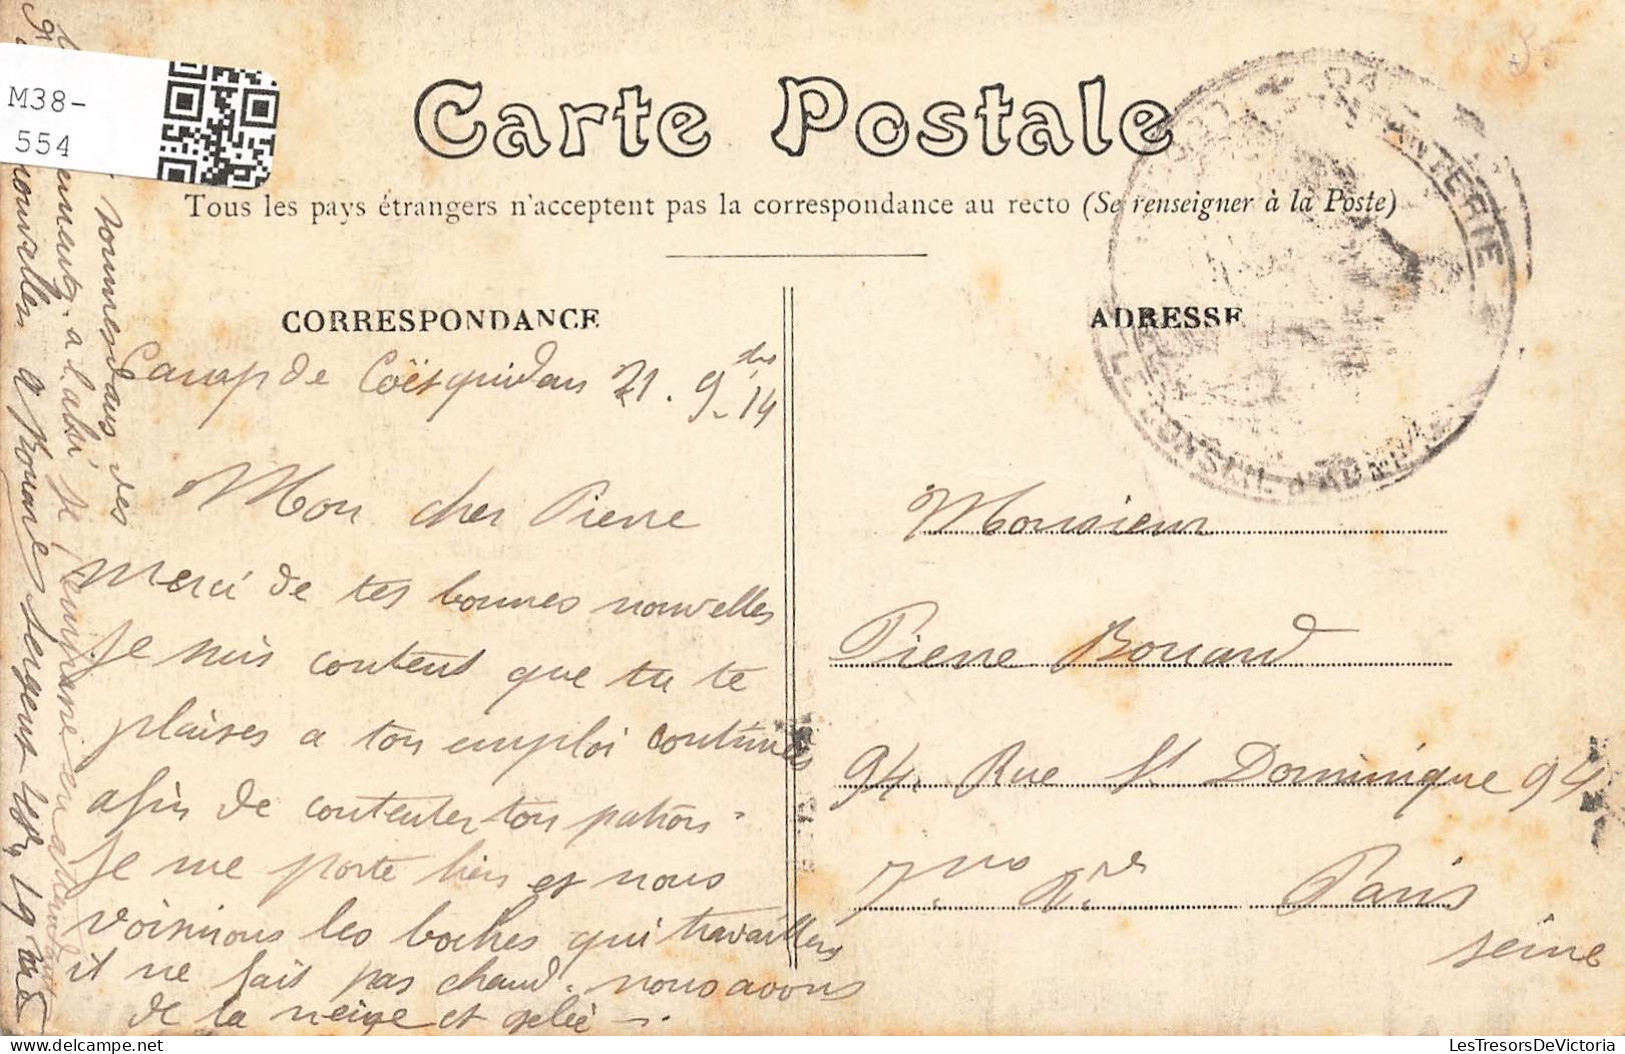 M38-
554
Carte Postale
Tous les pays étrangers n'acceptent pas la correspondance au recto (Se renseigner à la Poste)
CORRESPONDANCE
Camp de Coëtquidan 21. 9bre 14
Mon cher Pierre
Merci de tes bonnes nouvelles
Je suis content que tu te
plaises a ton emploi continues
afin de contenter ton patron.
Je me porte bien et nous
voisinons les boches qui travaillent
il ne fait pas chaud. nous avons
de la neige et gelée.
nommes dans des
a l'abri je
en attendant
nouvelles a sergent 19me
ADRESSE
INFANTERIE
LE CONSEIL D'ADMON
Monsieur
Pierre Bouard
94. Rue St Dominique 94
7me Ar. Paris
Seine
LesTresorsDeVictoria.com